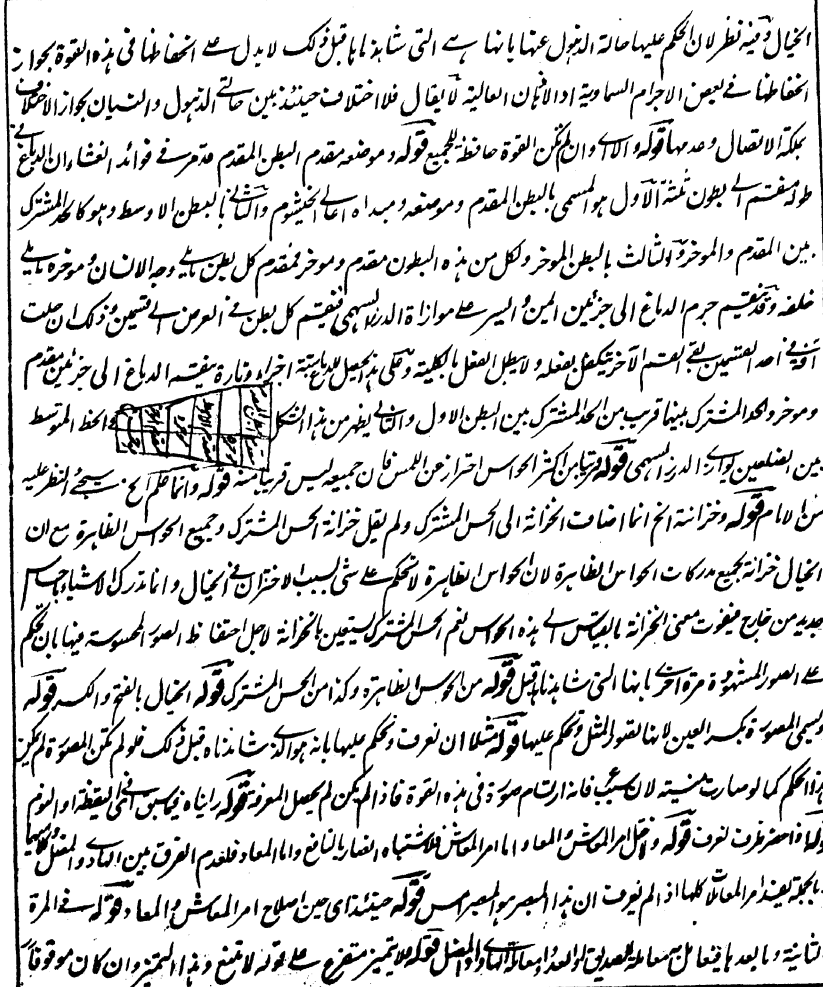 الخيال وفيه نظر لان الحكم عليها حالة الذهول عنها بانها هى التى شاهدناها قبل ذلك لا يدل على انحفاظها فى هذه القوة بجواز
انحفاظها فى بعض الاجرام السماوية او الاذهان العالية لا يقال فلا اختلاف حينئذ بين حالتى الذهول والنسيان بجواز الاختلاف
بملكة الاتصال وعدمها قوله والا اى وان لم تكن القوة حافظة للجميع قوله وموضعه مقدم البطن المقدم قد مر فى فوائد الغشاء ان الدماغ فى
طوله منقسم الى بطون ثلثة الاول هو المسمى بالبطن المقدم وموضعه ومبداه اعالى الخيشوم والثانى بالبطن الاوسط وهو كالحد المشترك
بين المقدم والموخر والثالث بالبطن الموخر ولكل من هذه البطون مقدم وموخر فمقدم كل بطن ما يلى وجه الانسان وموخره ما يلى
خلفه وقد ينقسم جرم الدماغ الى جزئين ايمن وايسر على موازاة الدرز السهمى فينقسم كل بطن فى العرض الى قسمين وذلك ان حلت
آفة فى احد القسمين بقى القسم الآخر يتكفل بفعله ولا يبطل الفعل بالكلية وعلى هذا يحصل للدماغ ستة اجزاء وتارة ينقسم الدماغ الى جزئين مقدم
وموخر والحد المشترك بينهما قريب من الحد المشترك بين البطن الاول والثانى يظهر من هذا الشكل والخط المتوسط
بين الضلعين يوازى الدرز السهمى قوله قريبا من اكثر الحواس احتراز عن اللمس فان جميعه ليس قريبا منه قوله وانما علم الخ سيجئ النظر عليه
من الامام قوله وخزانته الخ انما اضاف الخزانة الى الحس المشترك ولم يقل خزانة الحس المشترك وجميع الحواس الظاهرة مع ان
الخيال خزانة لجميع مدركات الحواس الظاهرة لان الحواس الظاهرة لا تحكم على شئ بسبب الاختزان فى الخيال وانما تدرك الاشياء باحساس
جديد من خارج فيفوت معنى الخزانة بالقياس الى هذه الحواس نعم الحس المشترك يستعين بالخزانة لاجل احتفاظ الصور المحسوسة فيها بان يحكم
على الصور المشهودة مرة اخرى بانها التى شاهدناها قبل قوله من الحواس الظاهرة وكذا من الحس المشترك قوله الخيال بالفتح والكسر قوله
ويسمى المصورة بكسر العين لانها تصور المثل وتحكم عليها قوله مثلا ان نعرف ونحكم عليها بانه هو الذى شاهدناه قبل ذلك فلو لم تكن المصورة لم يكن
هذا الحكم كما لو صارت منسية لان سببه فانه ارتسام صورة فى هذه القوة فاذا لم يكن لم يحصل المعرفة قوله رايناه فيما سبق اى فى اليقظة او النوم
قوله اذا حضر ظرف لنعرف قوله واختل امر المعاش والمعاد اما امر المعاش فلاشتباه الضار بالنافع واما المعاد فلعدم الفرق بين الهادى والمضل
وبالجملة يفسد امر المعاملات كلها اذا لم نعرف ان هذا المبصر هو المبصر امس قوله حينئذ اى حين اصلاح امر المعاش والمعاد قوله فى المرة
الثانية وما بعدها فيعامل به معاملة الصديق او العدو او معاملة الهادى او المضل قوله فلا يتميز متفرع على قوله لا تمتنع وهذا التميز وان كان موقوفا